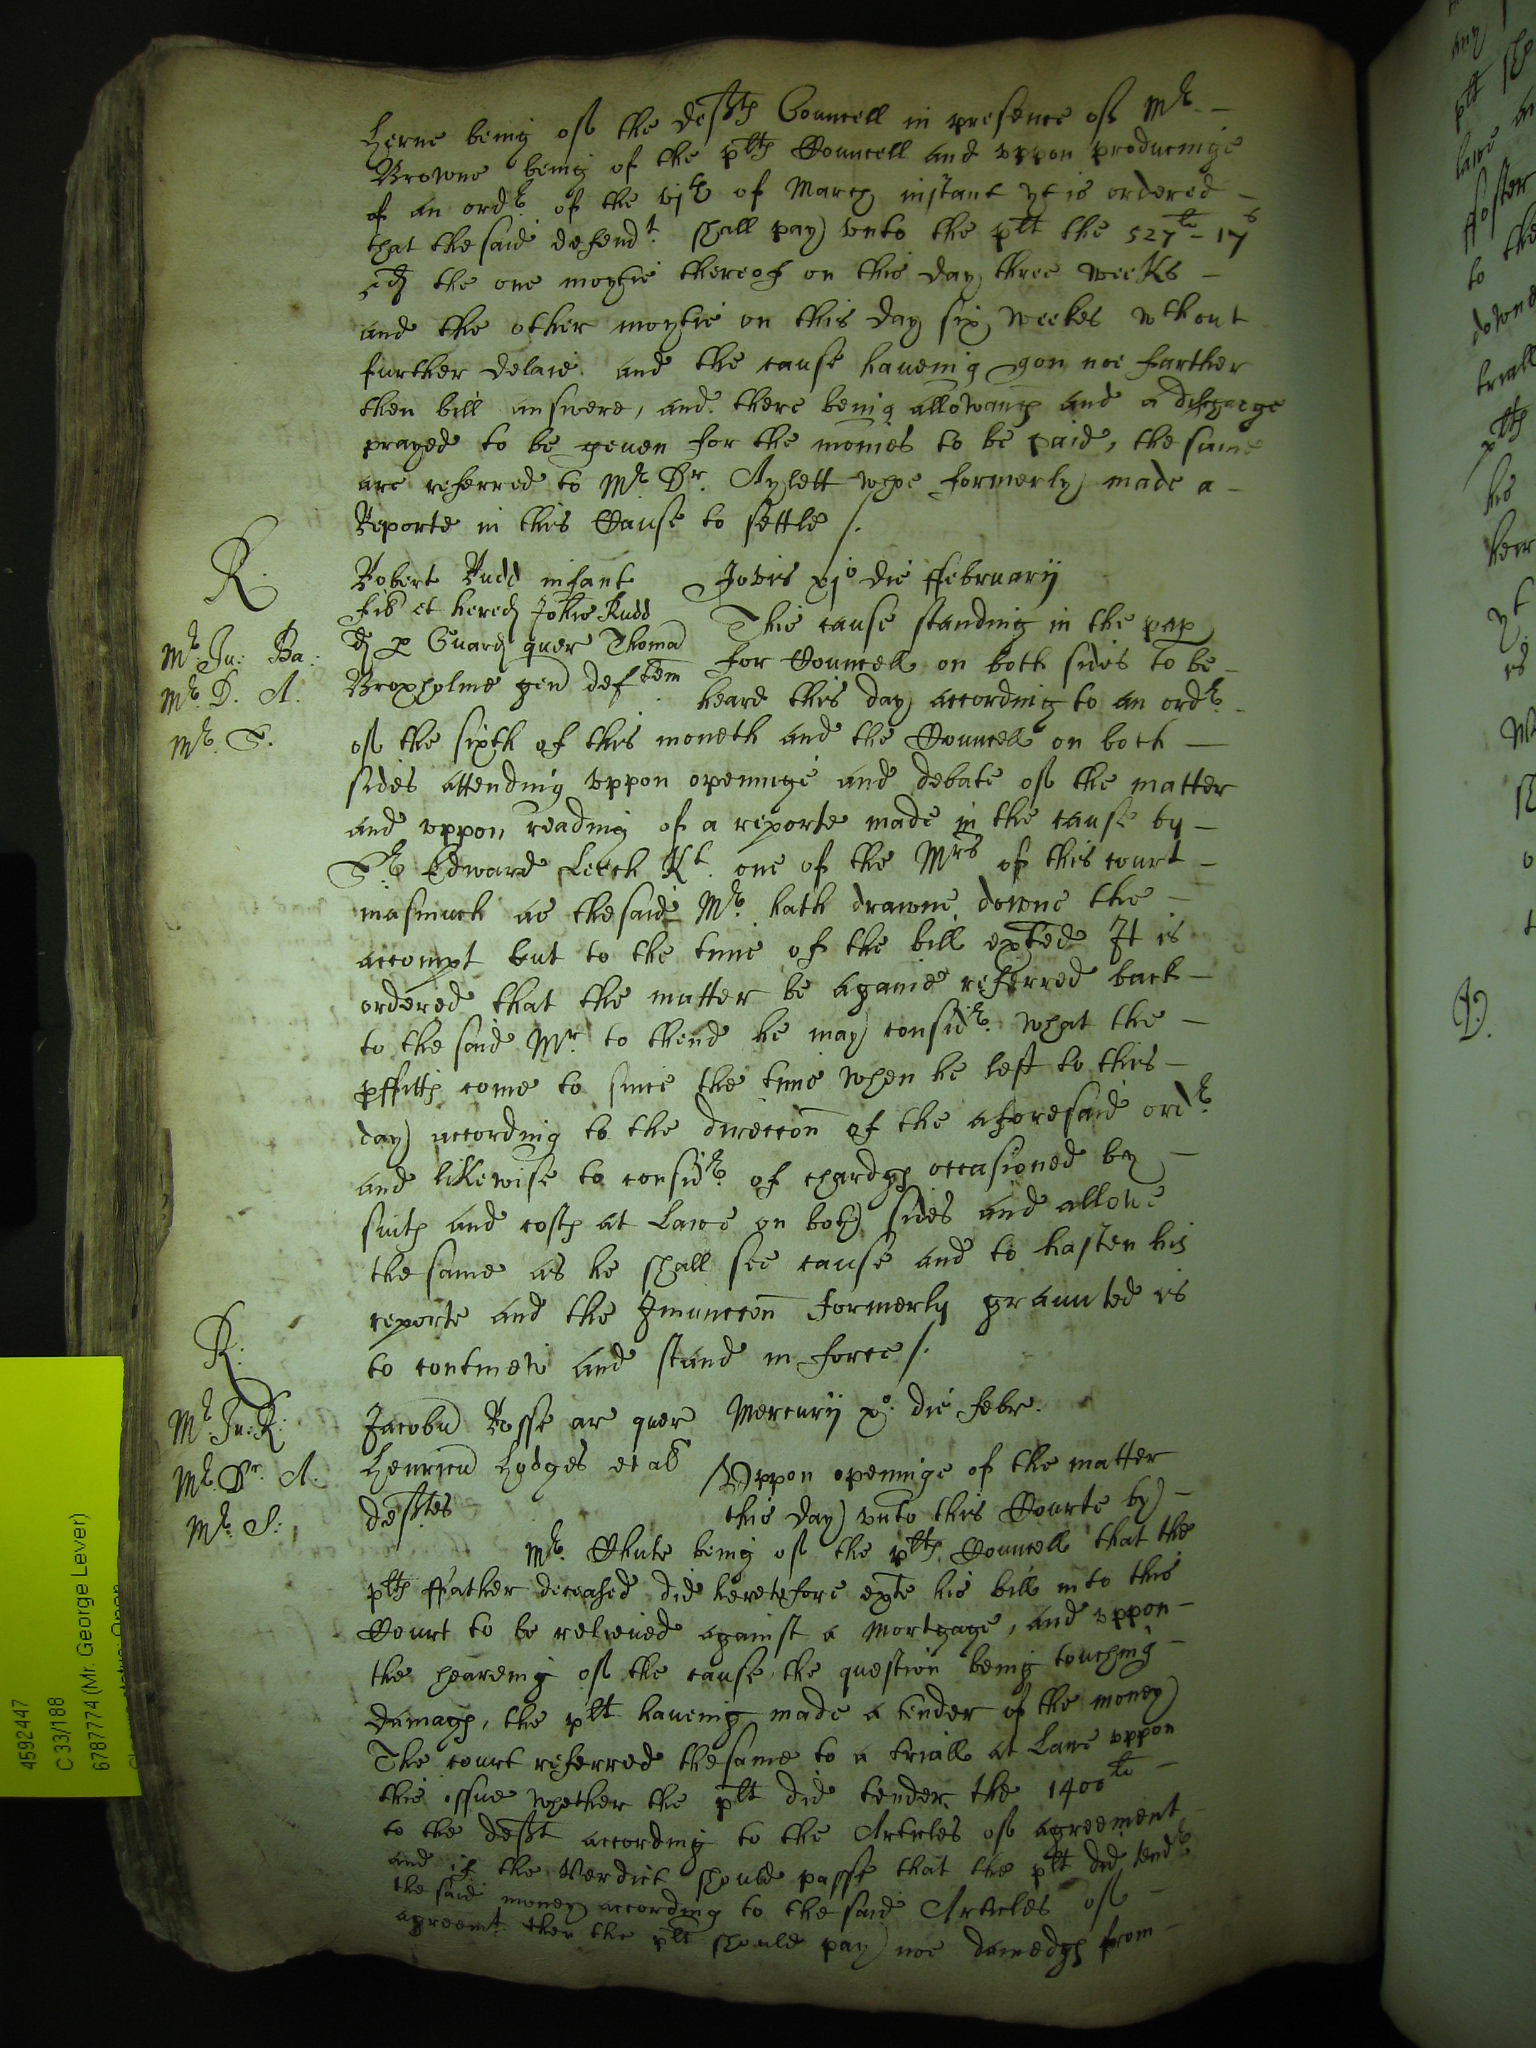 Herne being of the deftes Councell in presence of Mr.
Browne being of the pltes Councell and vppon producinge
of an ordr. of the vjth of March instant yt is ordered
that the said defendt. shall pay vnto the plt the 527li - 17s
the one moytie thereof on this day three weeks
and the other moytie on this day six weekes wthout
further delaie. and the cause haueing gon noe farther
then bill answere, and there being allowances and a discharge
prayed to be geuen for the monies to be paid, the same
are referred to Mr. Dr. Aylett whoe formerly made a
Reporte in this Cause to settle /.
R.
Robert Rudd infant
fil et hered Johis Rudd
p Guard quer Thomas
Broxholme gen def
Mr. Ju: Ba:
Mr. D. A.
Mr. S.
Jovis xjo die ffebruarij
This cause standing in the pap
for Councell on both sides to be
heard this day according to an ordr.
of the sixth of this moneth and the Councell on both
sides attending vppon openinge and debate of the matter
and vppon reading of a reporte made in the cause by
Sr. Edward Leech Kt. one of the Mrs of this court
inasmuch as the said Mr. hath drawne downe the
accompt but to the time of the bill exted It is
ordered that the matter be againe referred back
to the said Mr. to thend he may considr. what the
pffitts come to since the time when he left to this
day according to the direccon of the aforesaid ordr.
and likewise to considr. of chardges occasioned by
suits and costs at Lawe on both sides and allowe
the same as he shall see cause and to hasten his
reporte and the Iniunccon formerly graunted is
to continew and stand in force /.
R:
Mr. Ju: R:
Mr. Dr. A.
Mr. S:
Jacobus Rosse ar quer
Henricus Hodges et al
deftes
Mercurij xo. die Febr.
Vppon openinge of the matter
this day vnto this Courte by
Mr. Chute being of the pltes Councell that the
pltes ffather deceased did heretofore exte his bill into this
Court to be relieued against a Mortgage, and vppon
the heareing of the cause the question being touching
damages, the plt haueing made a tender of the money
The court referred the same to a triall at Lawe vppon
this issue whether the plt did tender the 1400li
to the deft according to the Articles of agreement
and if the Verdict should passe that the plt did tendr.
the said money according to the said Articles of
agreemt. then the plt should pay noe damedges from
4592447
C 33/188
6787774 (Mr. George Lever)